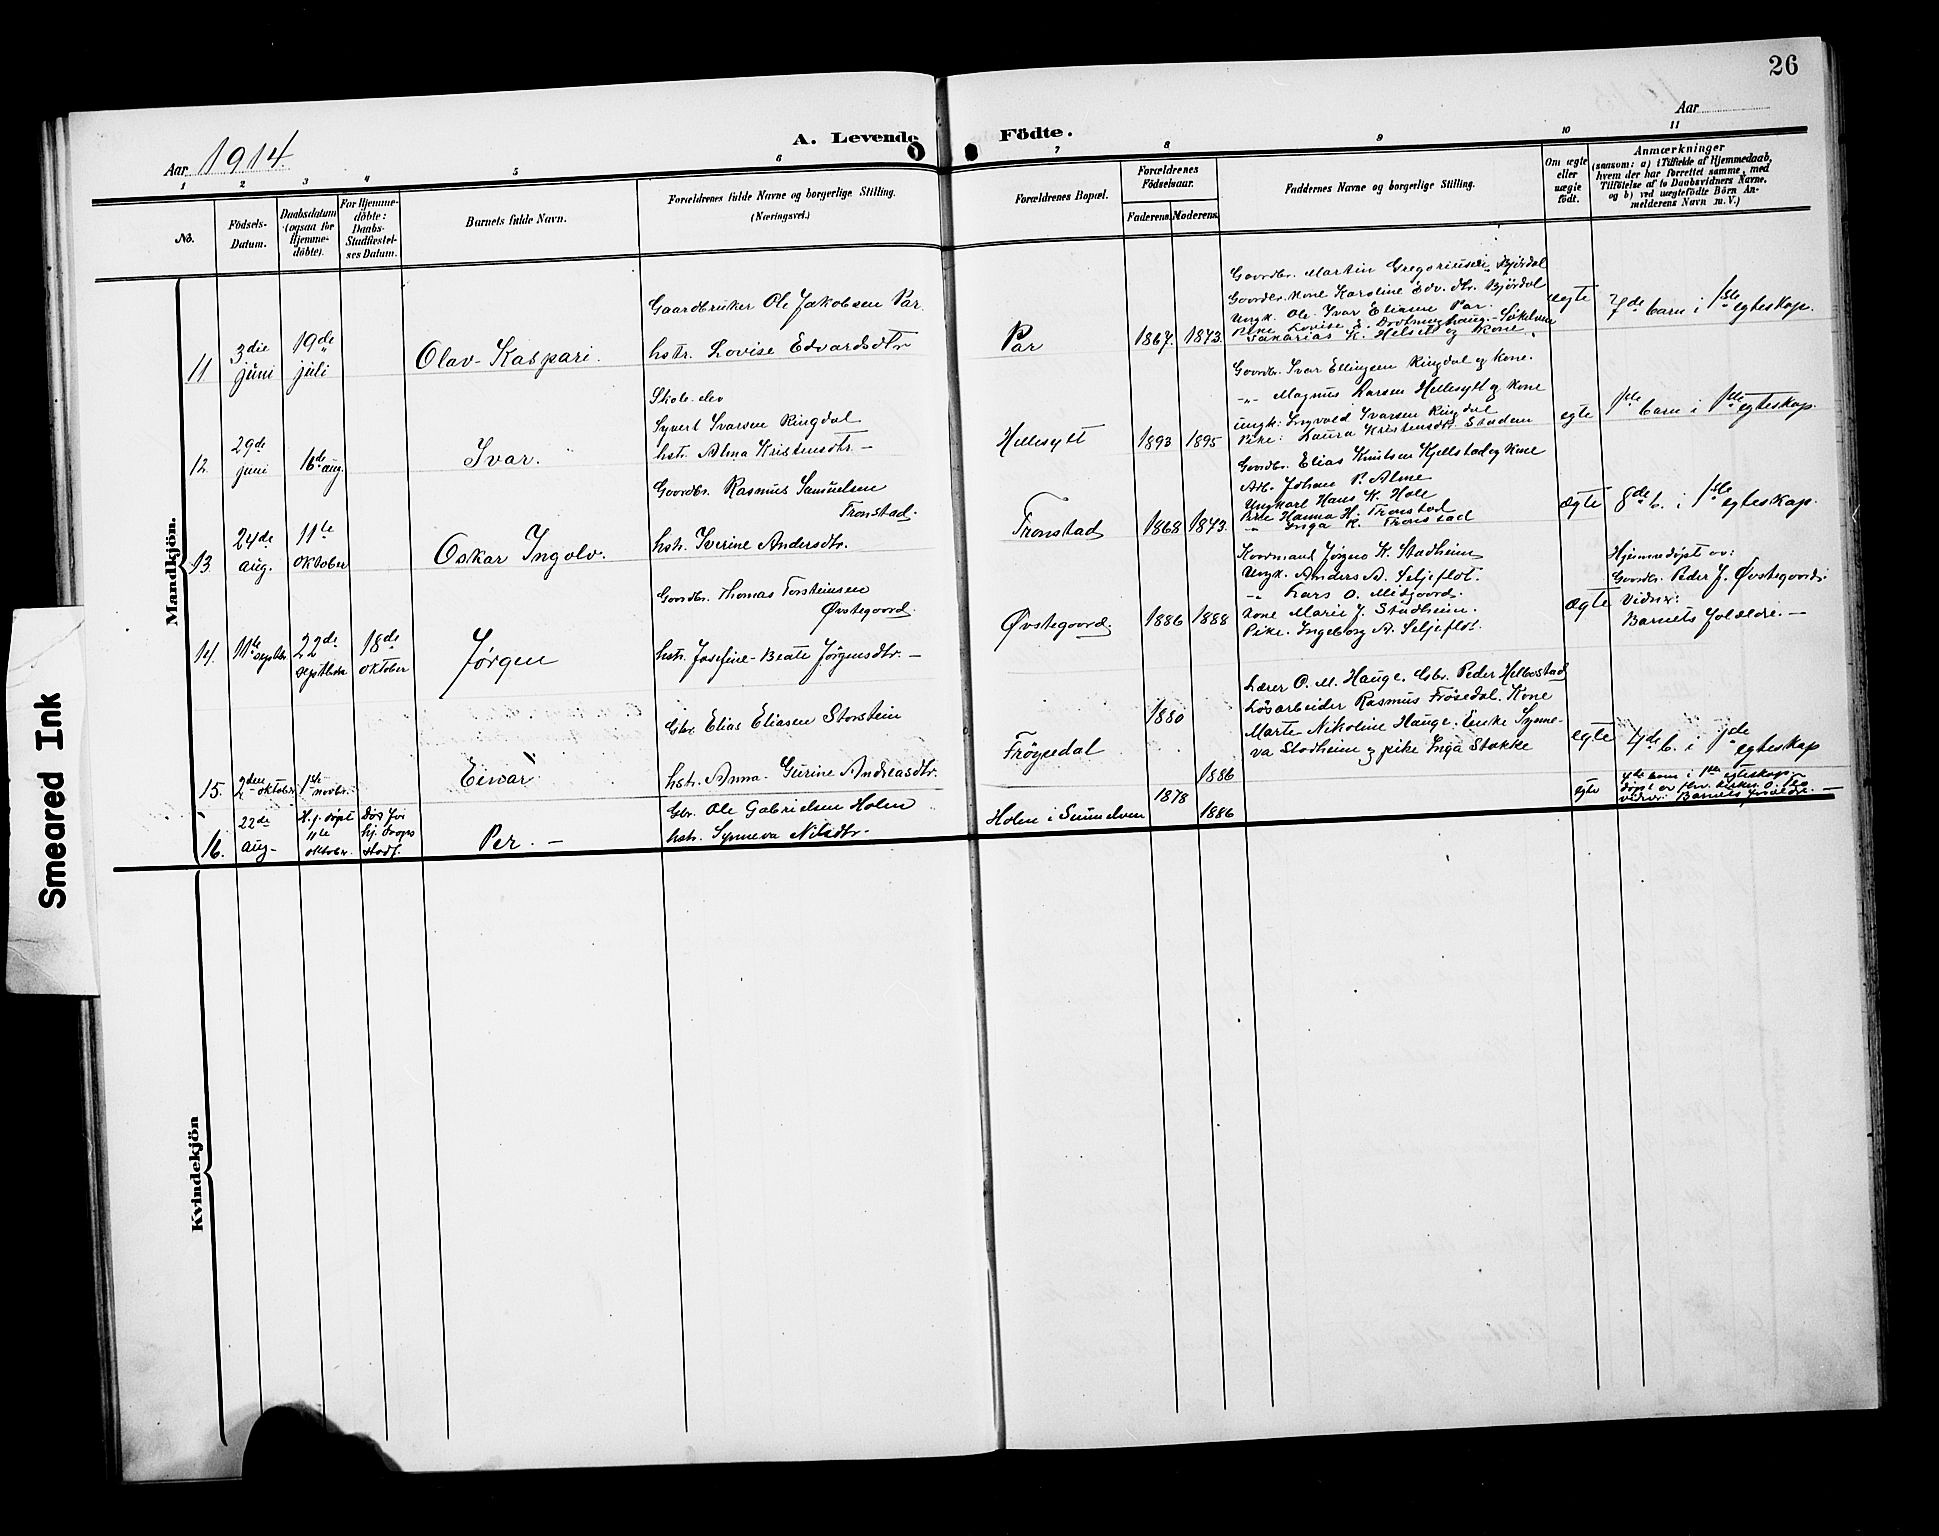 26
Aar 1914.
A. Levende Födte.
Aar
1 2 3 4 5 6 7 8 9 10 11
No.
Födsels-Datum.
Daabsdatum (ogsaa for Hjemme-döbte).
For Hjemme-döbte: Daabs-Stadfæstel-ses Datum.
Barnets fulde Navn.
Forældrenes fulde Navne og borgerlige Stilling. (Næringsvei.)
Forældrenes Bopæl.
Forældrenes Födselsaar.
Faderens. Moderens.
Faddernes Navne og borgerlige Stilling.
Om ægte eller uægte födt.
Anmærkninger
(saasom: a) i Tilfælde af Hjemmedaab, hvem der har forrettet samme, med Tilföielse af to Daabsvidners Navne, og b) ved uægtefödte Börn An-melderens Navn m. V.)
Mandkjön.
11
3die juni
19de juli
Olav-Kaspari.
Gaardbruker Ole Jakobsen Par.
hstr. Lovise Edvardsdtr
Par
1867. 1873.
Goordbr. Martin Gregoriusen Bjørdal
Goordbr. kone Karoline Edv. dtr. Bjørdal
Ungk. Ole Ivar Eliasen Par.
Pike Lovise
Sakarias K. Helset og kone
egte
7de barn i 1ste egteskap.
12.
29de juni
16de aug.
Ivar.
Skole elev
Syvert Ivarsen Ringdal
hstr. Alma Kristensdtr. —
Hellesylt
1893 1895
Goordbr. Ivar Ellingsen Ringdal og kone.
-"- Magnus Larsen Hellesylt og kone
ungk: Ingvald Ivarsen Ringdal
Pike: Laura Kristensdtr. Stadem
egte
1ste barn i 1ste egteskap.
13.
24de aug.
11te oktober
Oskar Ingolv.
Goordbr. Rasmus Samuelsen
Tronstad.
hstr. Iverine Andersdtr.
Tronstad
1868 1873.
Goordbr. Elias Knutsen Kjellstad og kone
Arb. Johan P. Alme
Ungkarl Hans K. Hole
Pike Hanna H. Tronstad
" Inga K. Tronstad
ægte
8de b. i 1ste egteskap.
14.
11te septbr.
22de september
18de oktober
Jørgen
Goordbr. Thomas Torsteinsen
Øvstegoord.
hstr. Josefine-Beate Jørgensdtr. —
Øvstegoord.
1886 1888
Koordmand Jørgen K. Stadheim
Ungk. Anders A. Seljeflot.
-"- Lars O. Midjoord.
Kone Marie J. Stadheim.
Pike. Ingeborg A. Seljeflot.
ægte
Hjemmedøpt av:
Goordbr. Peder J. Øvstegoord:
Vidner:
Barnets forældre. —
15.
2den oktober
1ste novbr.
Einar
Gbr. Elias Eliasen Storstein
hstr. Anna-Gurine Andreasdtr.
Frøysedal
1880 1886
Lærer O. M. Hauge. Gbr. Peder Hellestad
Løsarbeider Rasmus Frøsedal. Kone
Marte Nikoline Hauge. Enke Synne-
va Stadheim og pike Inga Stokke
egte
4de b. i 1ste egteskap
16.
22de aug-
Hj. døpt 11te oktober.
Død før hj. daaps stadf.
Per. —
Gbr. Ole Gabrielsen Holen
hstr. Synneva Nilsdtr.
Holen i Sunnelven
1878 1886
egte
barn i 1ste egteskap.
døpt av
vidner: Barnets forældre. —
Kvindekjön
Smeared Ink